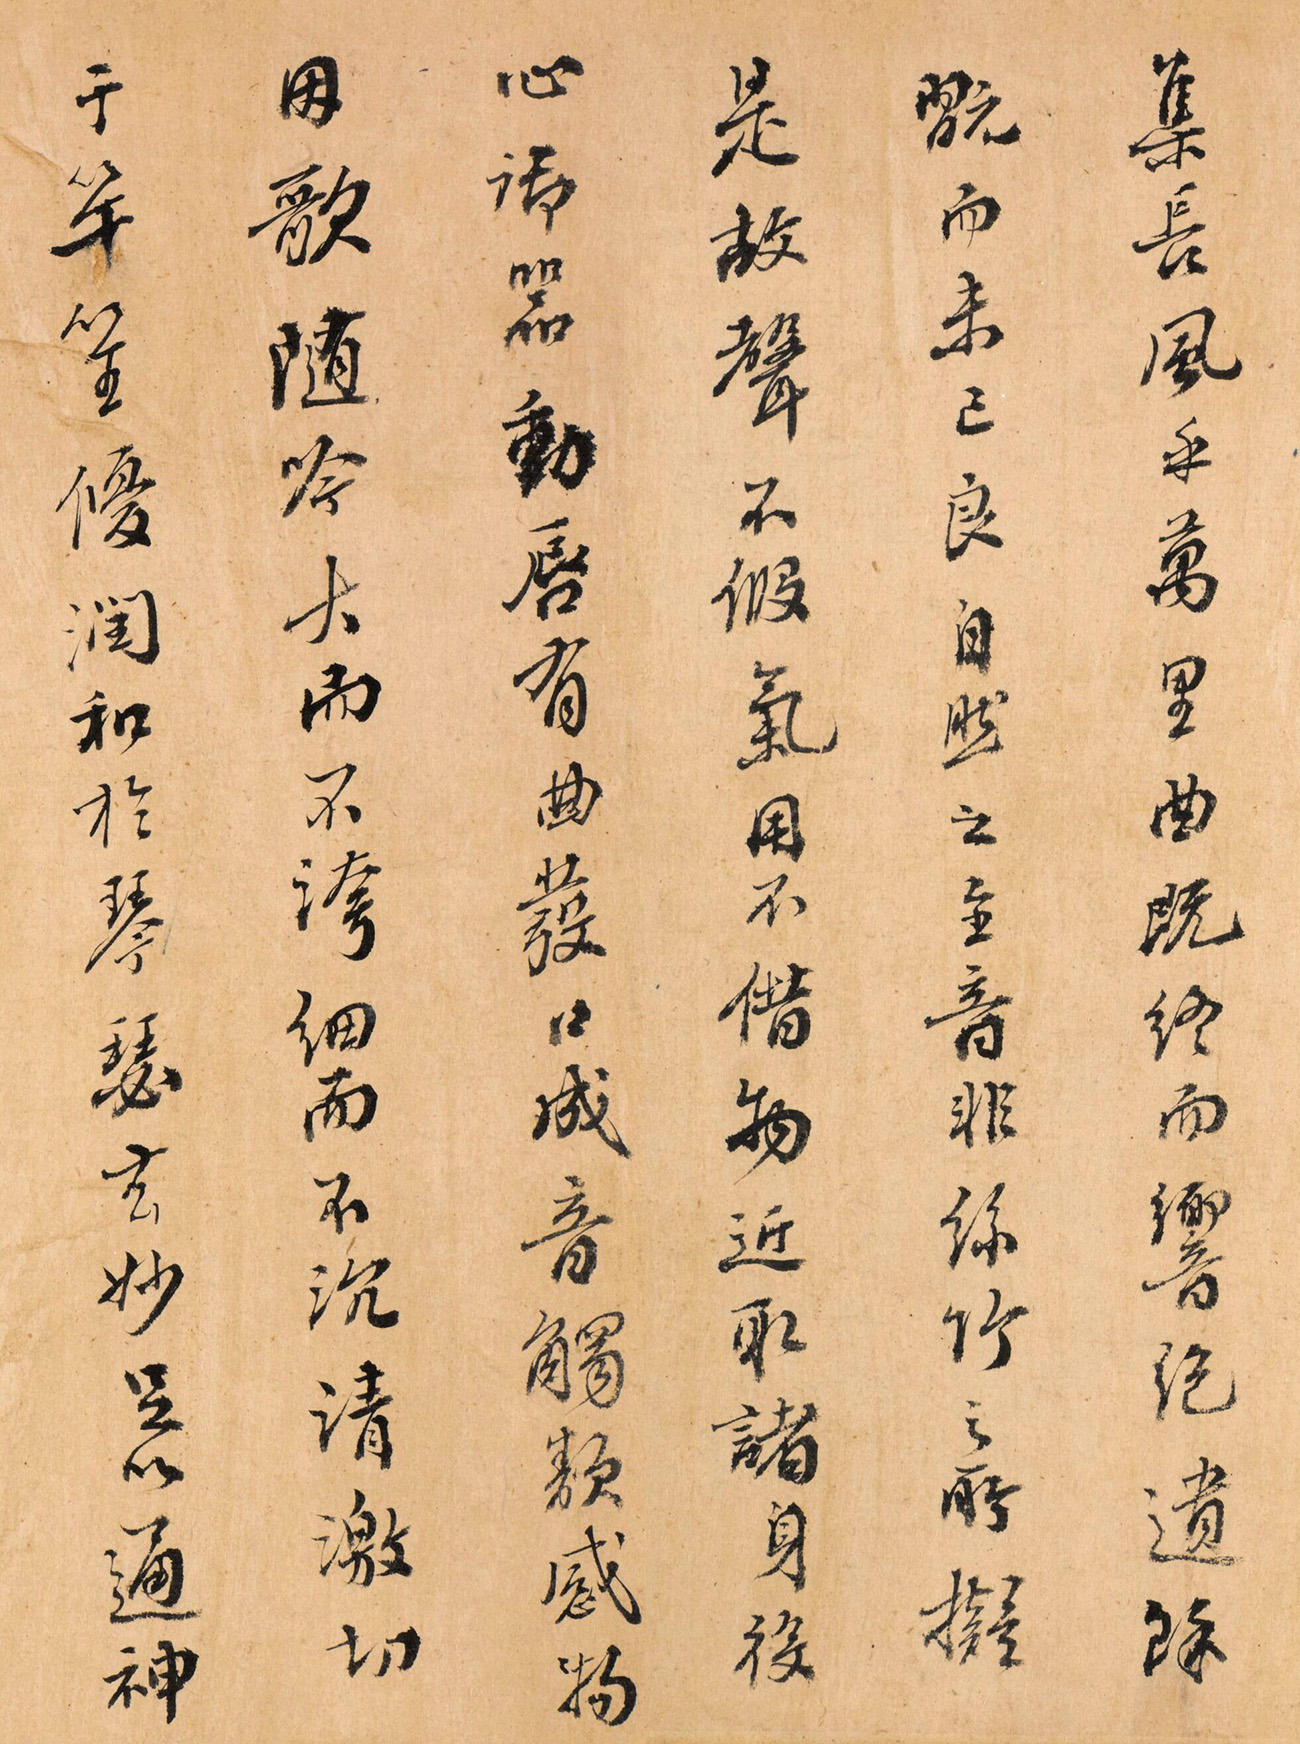 集長風乎萬里曲既終而響絕遺餘
翫而未已良自然之至音非絲竹之所擬
是故聲不假氣用不借物近取諸身役
心御器動唇有曲發口成音觸類感物
因歌随吟大而不誇細而不沉清激切
于竽笙優潤和於琴瑟玄妙足以通神